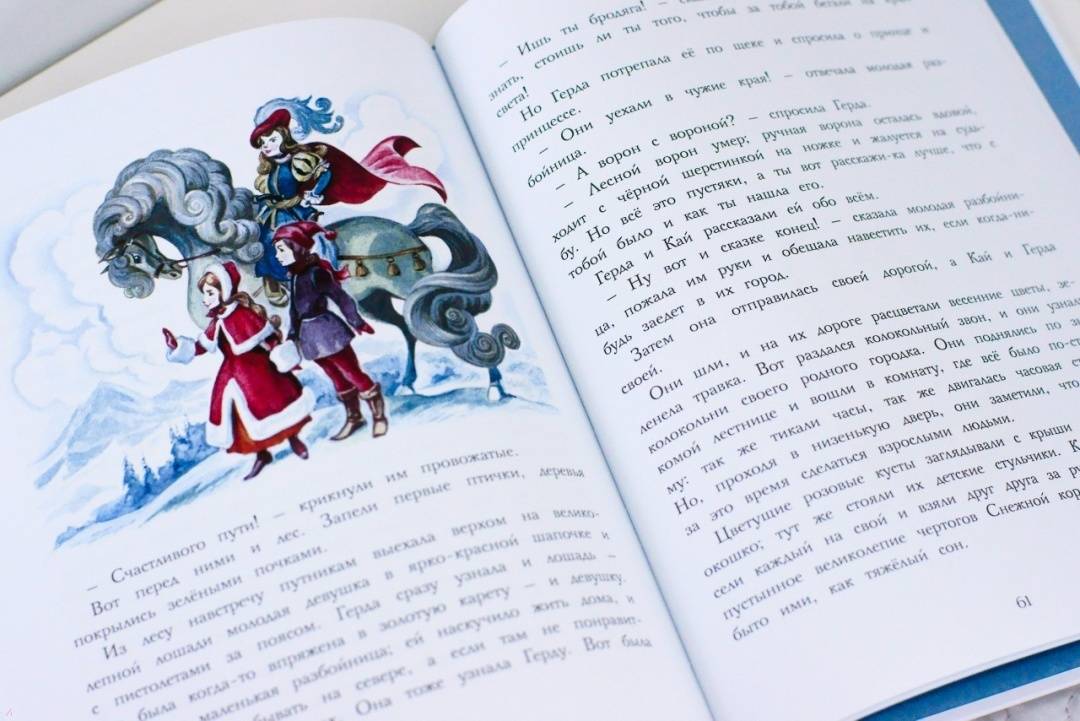 – Счастливого пути! – крикнули им провожатые.
Вот перед ними и лес. Запели первые птички, деревья
покрылись зелёными почками.
Из лесу навстречу путникам выехала верхом на велико-
лепной лошади молодая девушка в ярко-красной шапочке и
с пистолетами за поясом. Герда сразу узнала и лошадь –
была когда-то впряжена в золотую карету – и девушку.
маленькая разбойница; ей наскучило жить дома, и
бывать на севере, а если там не понравит-
Она тоже узнала Герду. Вот была
– Ишь ты бродяга! –
знать, стоишь ли ты того, чтобы за тобой бегали на край
света!
Но Герда потрепала её по щеке и спросила о принце и
принцессе.
– Они уехали в чужие края! – отвечала молодая раз-
бойница.
– А ворон с вороной? – спросила Герда.
– Лесной ворон умер; ручная ворона осталась вдовой,
ходит с чёрной шерстинкой на ножке и жалуется на судь-
бу. Но всё это пустяки, а ты вот расскажи-ка лучше, что с
тобой было и как ты нашла его.
Герда и Кай рассказали ей обо всём.
– Ну вот и сказке конец! – сказала молодая разбойни-
ца, пожала им руки и обещала навестить их, если когда-ни-
будь заедет в их город.
Затем она отправилась своей дорогой, а Кай и Герда
своей.
Они шли, и на их дороге расцветали весенние цветы, зе-
ленела травка. Вот раздался колокольный звон, и они узнал
колокольни своего родного городка. Они поднялись по зн
комой лестнице и вошли в комнату, где всё было по-ст
му: так же тикали часы, так же двигалась часовая ст
Но, проходя в низенькую дверь, они заметили, что
за это время сделаться взрослыми людьми.
Цветущие розовые кусты заглядывали с крыши
окошко; тут же стояли их детские стульчики. К
сели каждый на свой и взяли друг друга за ру
пустынное великолепие чертогов Снежной кор
быто ими, как тяжёлый сон.
61